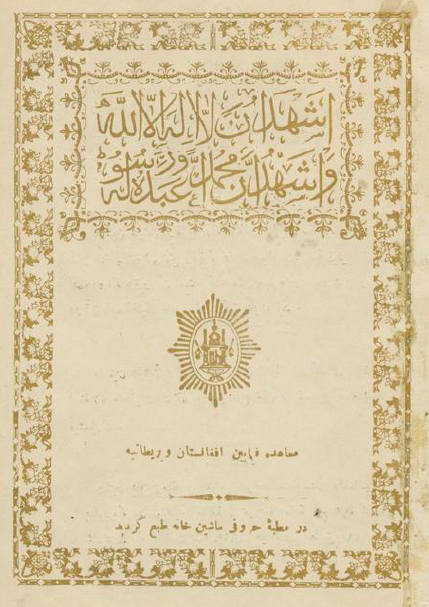 اشهد ان لا اله الا الله
واشهد ان محمدا عبده ورسوله
معاهده فیمابین افغانستان و بریطانیه
در مطبعهٔ حروفی ماشین خانه طبع گردید